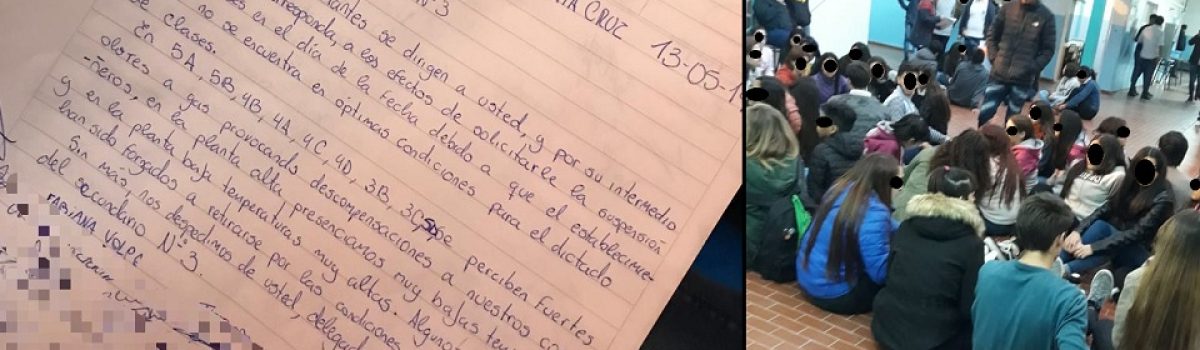 CRUZ 13-05-1
N°3
se dirigen a usted, y por su intermedio
a los efectos de solicitarle la suspensión
en el día de la fecha debido a que el establecimie-
no se encuentra en óptimas condiciones para el dictado
de clases.
En 5A, 5B, 4B, 4A, 4C, 4D, 3B, 3C, se perciben fuertes
olores a gas provocando descompensaciones a nuestros co
-ñeros, en la planta alta, presenciamos muy bajas tem
y en la planta baja temperaturas muy altas. Alguno
han sido forzados a retirarse por las condiciones
Sin más, nos despedimos de usted, delegad
del secundario N°3.
FABIANA VOLPE